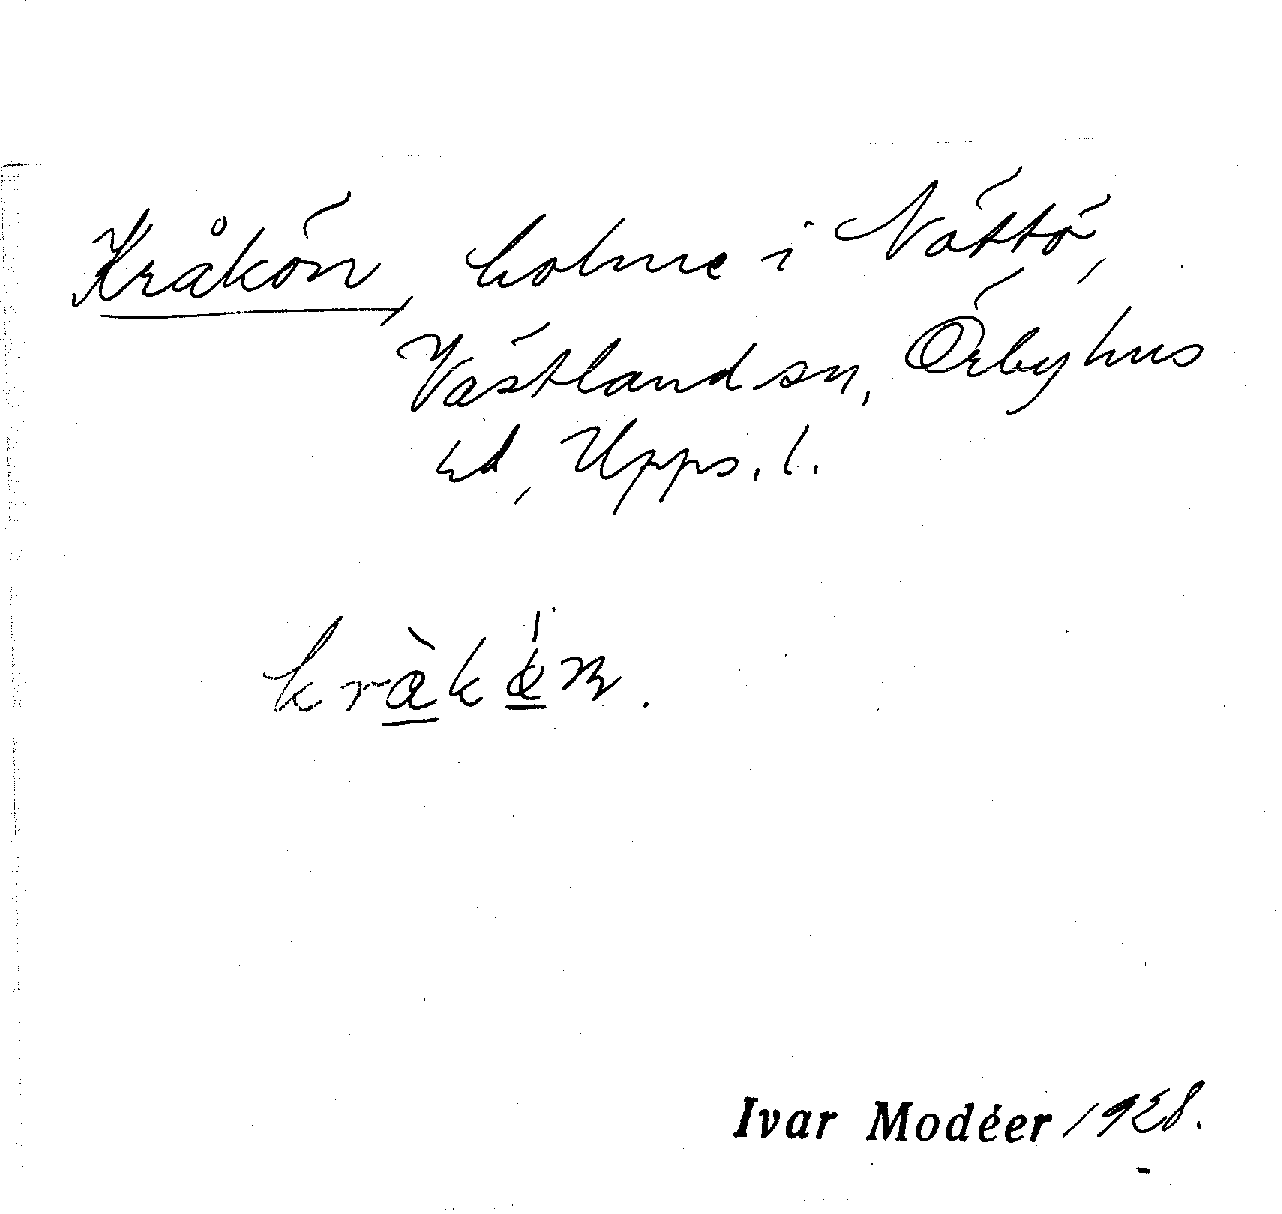 Kråkön, holme i Nöttö,
Västland sn, Örbyhus
hd, Upps. l.
kràkǿn.
Ivar Modéer 1928.